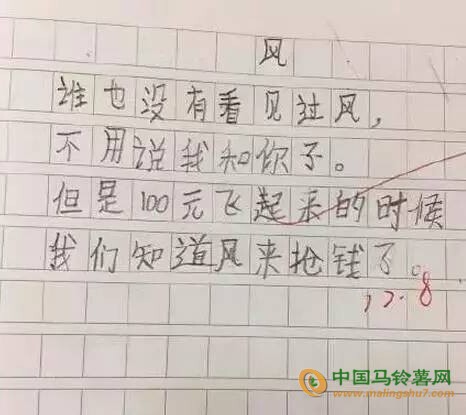 风
谁也没有看见过风，
不用说我知你子。
但是100元飞起来的时候
我们知道风来抢钱了。
12.8
中国马铃薯网
www.malingshu7.com